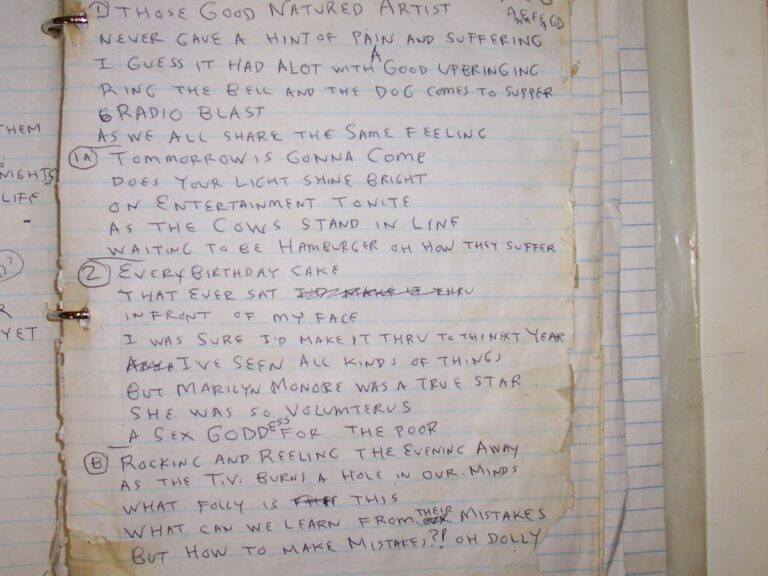 ① THOSE GOOD NATURED ARTIST
NEVER GAVE A HINT OF PAIN AND SUFFERING
I GUESS IT HAD ALOT WITH A GOOD UPBRINGING
RING THE BELL AND THE DOG COMES TO SUPPER
RADIO BLAST
AS WE ALL SHARE THE SAME FEELING
1A TOMMORROW IS GONNA COME
DOES YOUR LIGHT SHINE BRIGHT
ON ENTERTAINMENT TONITE
AS THE COWS STAND IN LINE
WAITING TO BE HAMBURGER OH HOW THEY SUFFER
② EVERY BIRTHDAY CAKE
THAT EVER SAT I'D MAKE IT THRU
IN FRONT OF MY FACE
I WAS SURE I'D MAKE IT THRU TO THE NEXT YEAR
I'VE SEEN ALL KINDS OF THINGS
BUT MARILYN MONORE WAS A TRUE STAR
SHE WAS SO VOLUMTERUS
A SEX GODDESS FOR THE POOR
Ⓑ ROCKING AND REELING THE EVENING AWAY
AS THE T.V. BURNS A HOLE IN OUR MINDS
WHAT FOLLY IS THIS
WHAT CAN WE LEARN FROM THEIR MISTAKES
BUT HOW TO MAKE MISTAKES?! OH DOLLY
THEM
NIGHTS
LIFE
YET